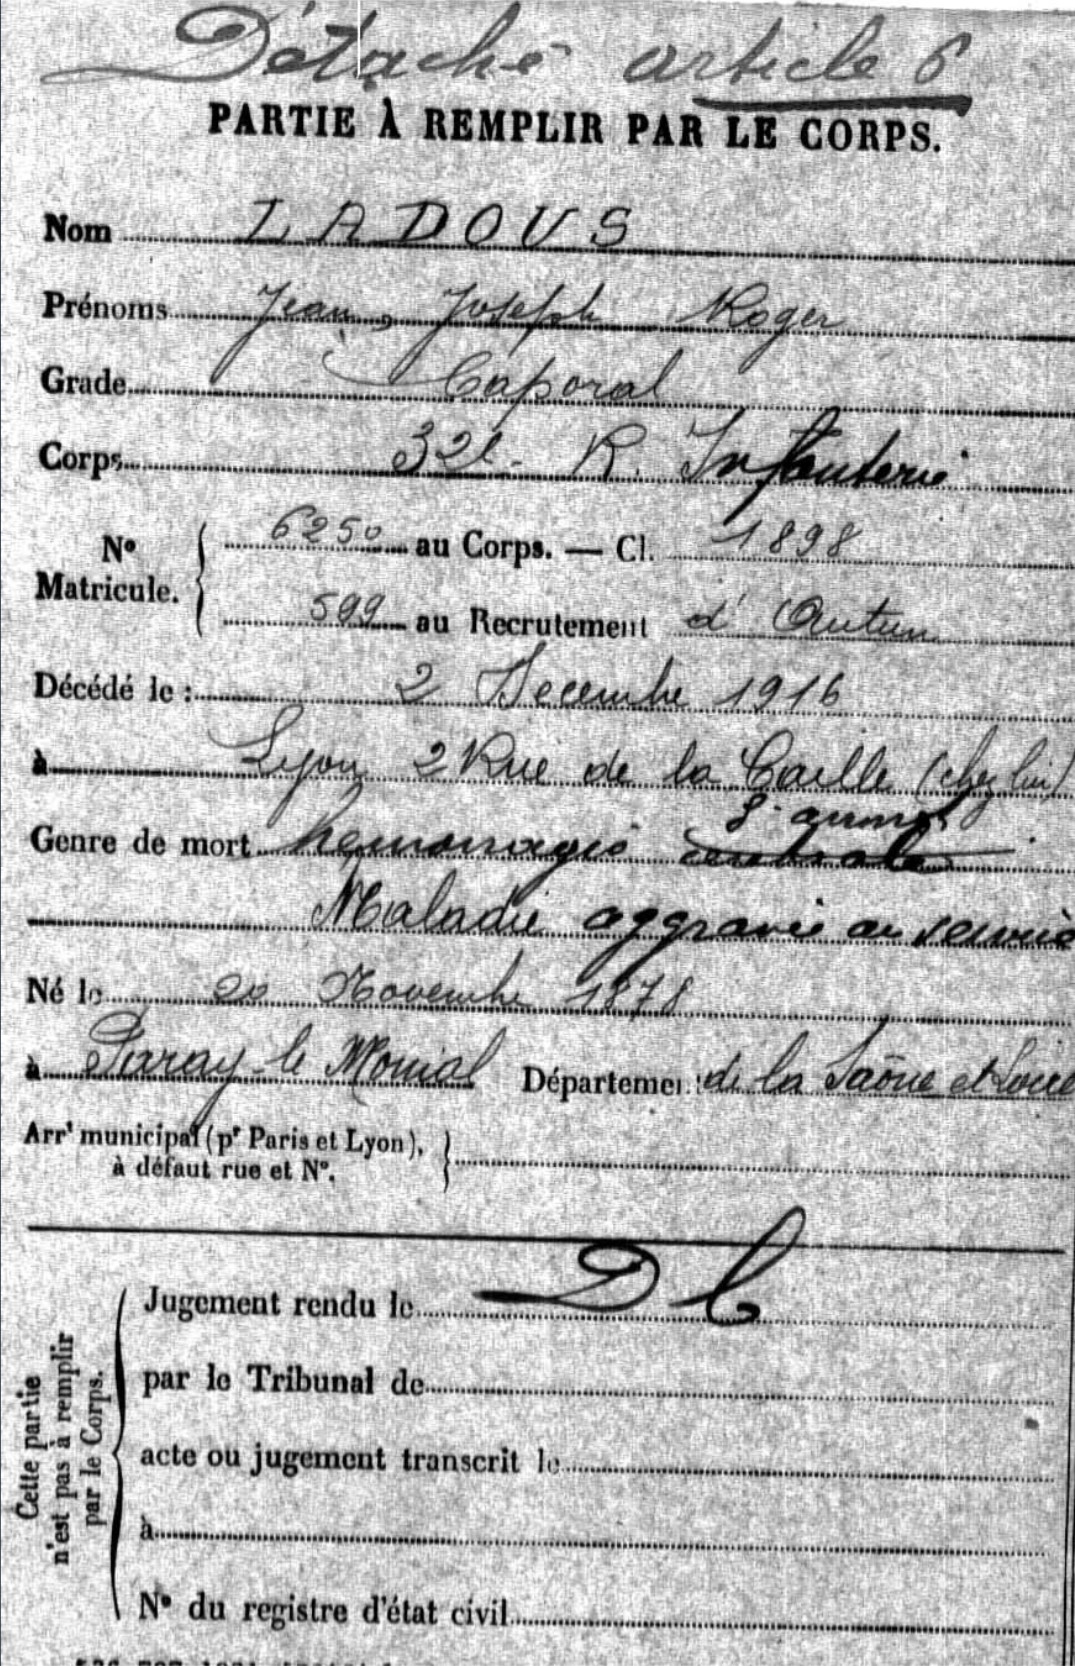 Détaché article 6
PARTIE À REMPLIR PAR LE CORPS.
Nom LADOUS
Prénoms Jean, Joseph Roger
Grade Caporal
Corps 32e R. Infanterie
No Matricule. { 6250 au Corps. — Cl. 1898
599 au Recrutement d'Autun
Décédé le : 2 Decembre 1916
à Lyon 2 Rue de la Caille (chez lui)
Genre de mort hemorragie
Maladie aggravée au service
Né le 20 Novembre 1878
à Paray-le Monial Département de la Saône et Loire
Arrt municipal (pr Paris et Lyon), }
à défaut rue et No.
D C
Jugement rendu le
par le Tribunal de
acte ou jugement transcrit le
à
No du registre d'état civil
Cette partie
n'est pas à remplir
par le Corps.